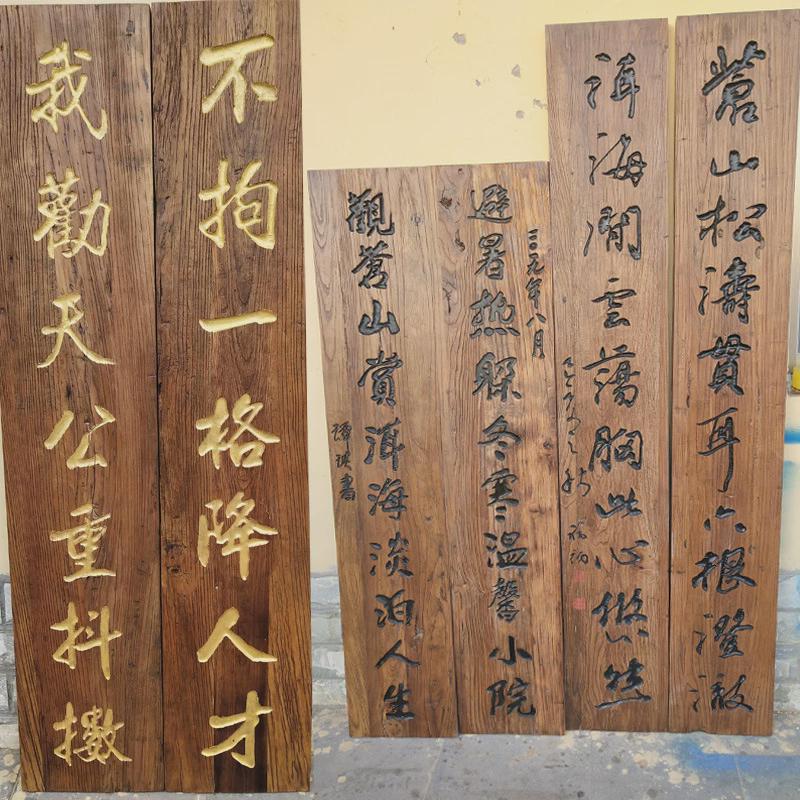 蒼山松濤貫耳六根澄澈
洱海閒雲蕩胸此心悠然
二〇一九年八月
避暑热躲冬寒溫馨小院
觀蒼山賞洱海淡泊人生
不拘一格降人才
我勸天公重抖擻